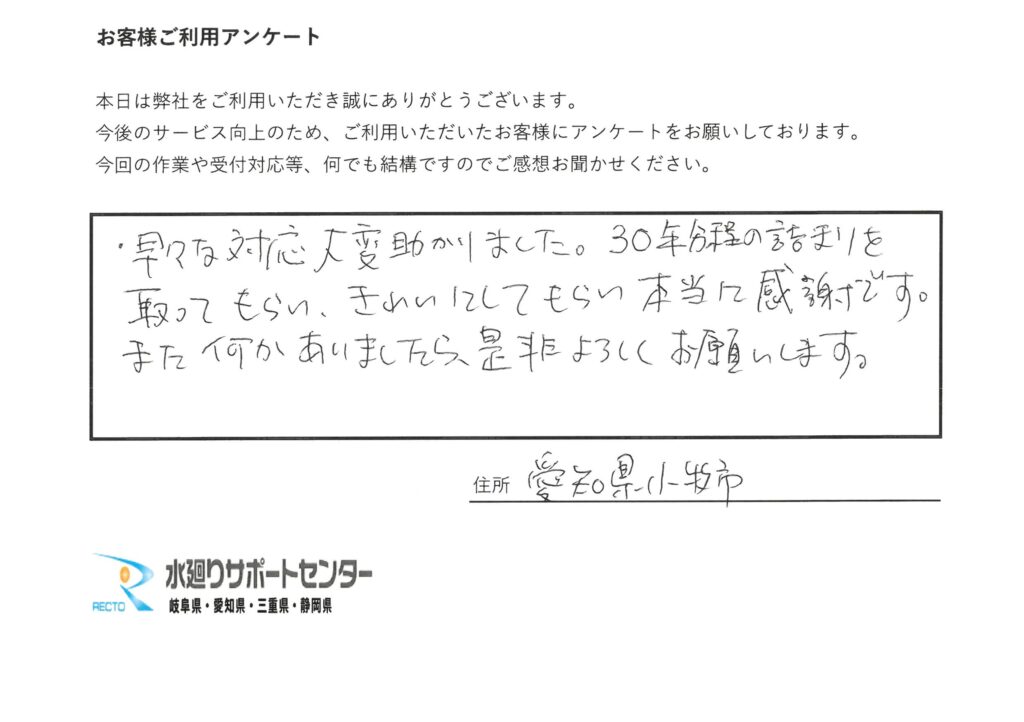 お客様ご利用アンケート
本日は弊社をご利用いただき誠にありがとうございます。
今後のサービス向上のため、ご利用いただいたお客様にアンケートをお願いしております。
今回の作業や受付対応等、何でも結構ですのでご感想お聞かせください。
・早々な対応大変助かりました。30年分程の詰まりを
取ってもらい、きれいにしてもらい本当に感謝です。
また何かありましたら、是非よろしくお願いします。
住所 愛知県小牧市
RECTO 水廻りサポートセンター
岐阜県・愛知県・三重県・静岡県